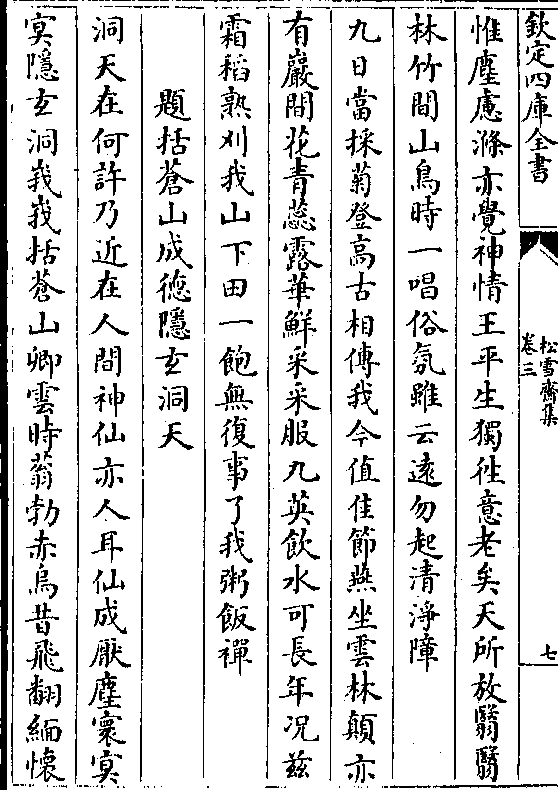 欽定四庫全書
松雪齋集
卷三
七
惟塵慮滌亦覺神情王平生獨徃意老矣天所放翳翳
林竹間山鳥時一唱俗氛雖云遠勿起清淨障
九日當採菊登高古相傳我今值佳節燕坐雲林顛亦
有巖間花青蕊露華鮮采采服九英飲水可長年况兹
霜稻熟刈我山下田一飽無復事了我粥飯禪
題括蒼山成德隱玄洞天
洞天在何許乃近在人間神仙亦人耳仙成厭塵寰冥
冥隱玄洞峩峩括蒼山卿雲時蓊勃赤烏昔飛翻緬懷